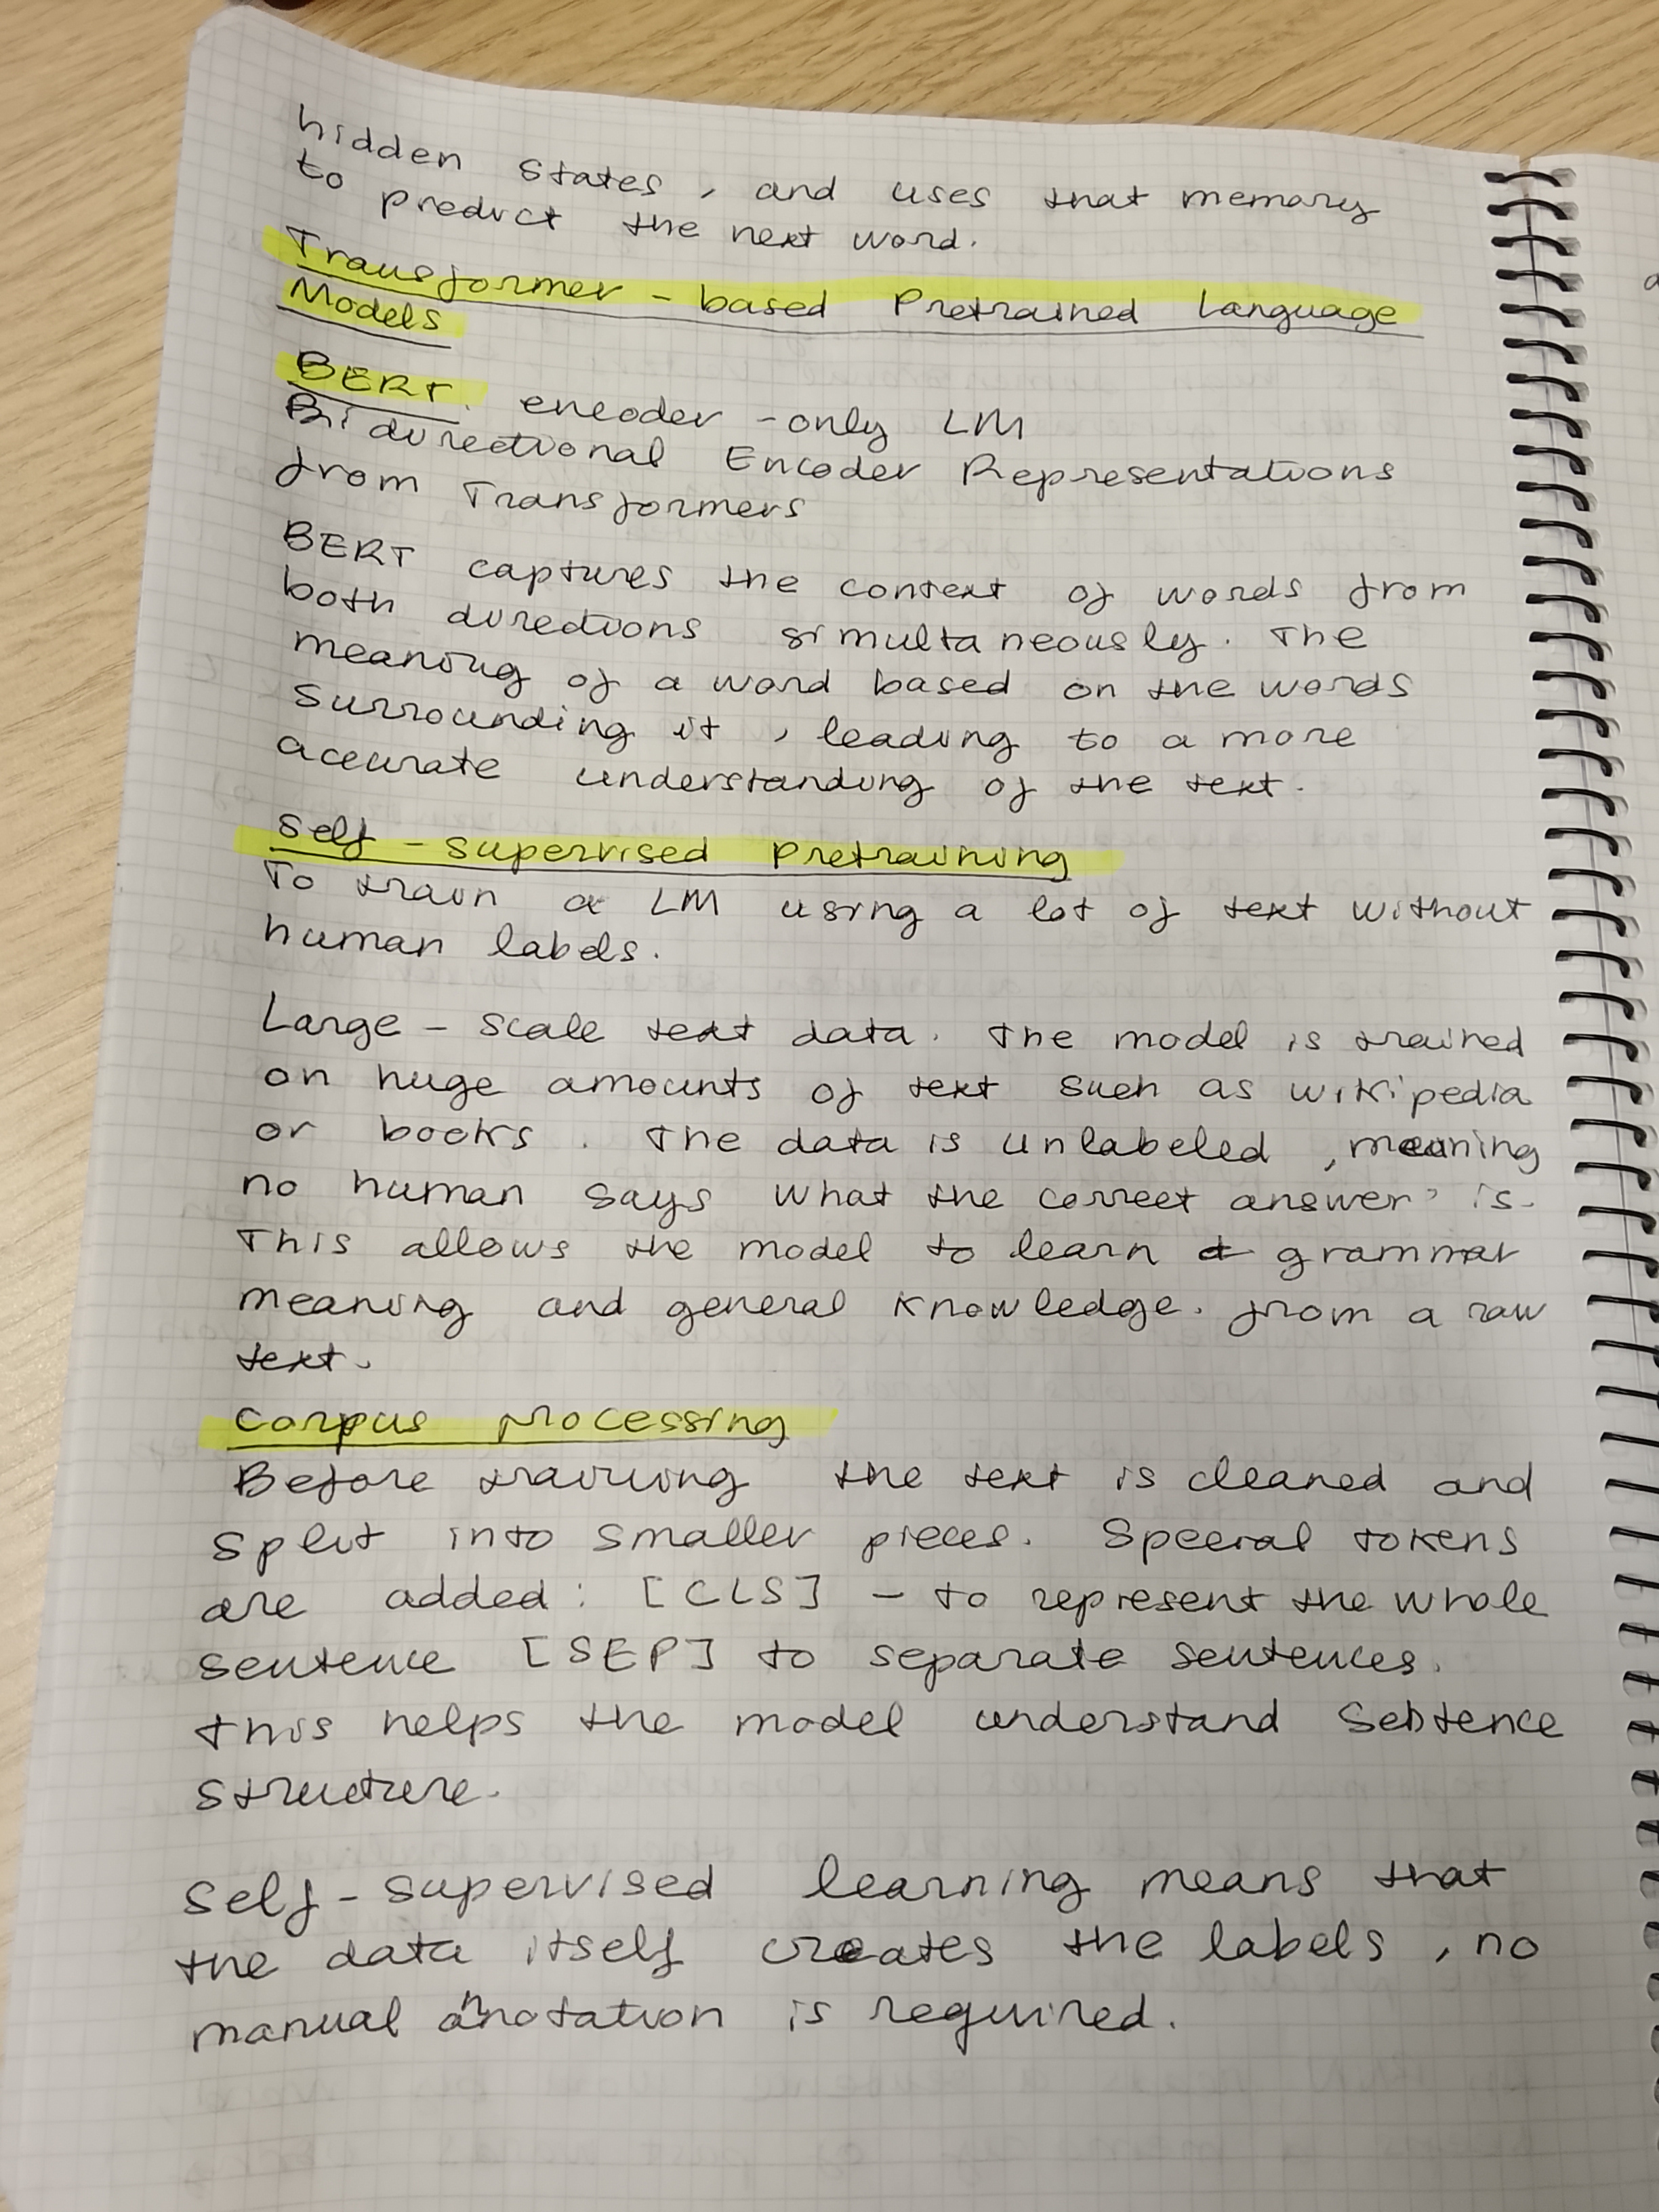 hidden states, and uses that memory
to predict the next word.
Transformer - based Pretrained Language
Models
BERT. encoder - only LM
Bidirectional Encoder Representations
from Transformers
BERT captures the context of words from
both directions simultaneously. The
meaning of a word based on the words
surrounding it, leading to a more
accurate understanding of the text.
Self - supervised Pretraining
To train a LM using a lot of text without
human labels.
Large - scale text data. The model is trained
on huge amounts of text such as wikipedia
or books. The data is unlabeled, meaning
no human says what the correct answer is.
This allows the model to learn grammar
meaning and general knowledge. from a raw
text.
Corpus processing
Before training the text is cleaned and
split into smaller pieces. Special tokens
are added: [CLS] - to represent the whole
sentence [SEP] to separate sentences.
This helps the model understand Sebtence
structure.
Self - supervised learning means that
the data itself creates the labels, no
manual annotation is required.